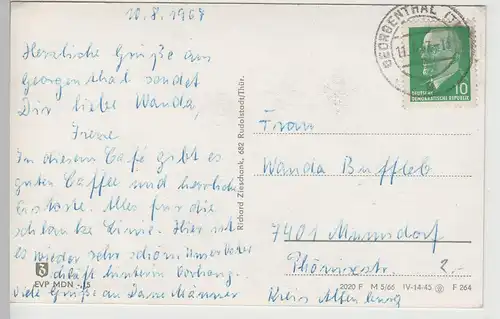 10.8.1967
Herzliche Grüße aus
Georgenthal sendet
Dir liebe Wanda,
Irene
In diesem Café gibt es
guten Caffee und herrliche
Eistorte. Alles für die
schlanke Linie. Hier ist
es wieder sehr schön. Unser
schläft hinterm Vorhang.
viele Grüße an Deine Männer
EVP MDN -,15
Richard Zieschank, 682 Rudolstadt/Thür.
GEORGENTHAL
DEUTSCHE
DEMOKRATISCHE REPUBLIK
10
Frau
Wanda Buffleb
7401 Mumsdorf
Phönixstr.
2.-
Kreis Altenburg
2020 F M 5/66 IV-14-45 F 264